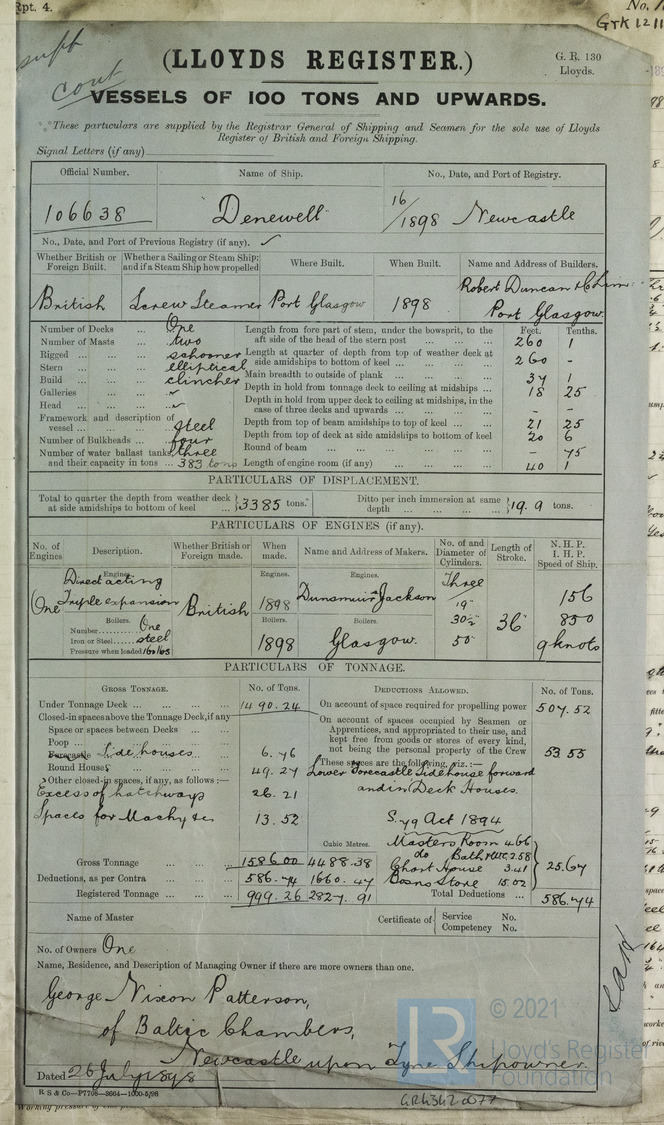 Rpt. 4.
No.
supt
cont
(LLOYDS REGISTER.)
G. R. 130
Lloyds.
VESSELS OF 100 TONS AND UPWARDS.
These particulars are supplied by the Registrar General of Shipping and Seamen for the sole use of Lloyds
Register of British and Foreign Shipping.
Signal Letters (if any)
Official Number. Name of Ship. No., Date, and Port of Registry.
106638 "Denewell" 16/1898 Newcastle
No., Date, and Port of Previous Registry (if any). ✓
Whether British or Foreign Built. Whether a Sailing or Steam Ship; and if a Steam Ship how propelled Where Built. When Built. Name and Address of Builders.
British Screw Steamer Port Glasgow 1898 Robert Duncan & Co Lim
Port Glasgow.
Number of Decks ... One
Number of Masts ... two
Rigged ... schooner
Stern ... elliptical
Build ... clincher
Galleries ... ✓
Head ... ✓
Framework and description of vessel ... steel
Number of Bulkheads ... four
Number of water ballast tanks, three
and their capacity in tons ... 383 tons
Feet. Tenths.
Length from fore part of stem, under the bowsprit, to the aft side of the head of the stern post ... 260 1
Length at quarter of depth from top of weather deck at side amidships to bottom of keel ... 260 -
Main breadth to outside of plank ... 37 1
Depth in hold from tonnage deck to ceiling at midships ... 18 25
Depth in hold from upper deck to ceiling at midships, in the case of three decks and upwards ... - -
Depth from top of beam amidships to top of keel ... 21 25
Depth from top of deck at side amidships to bottom of keel 20 6
Round of beam ... - 75
Length of engine room (if any) ... 40 1
PARTICULARS OF DISPLACEMENT.
Total to quarter the depth from weather deck at side amidships to bottom of keel ... } 3385 tons. Ditto per inch immersion at same depth ... } 19.9 tons.
PARTICULARS OF ENGINES (if any).
No. of Engines. Description. Whether British or Foreign made. When made. Name and Address of Makers. No. of and Diameter of Cylinders. Length of Stroke. N. H. P. I. H. P. Speed of Ship.
Engines. Engines. Engines.
One Direct acting Triple expansion British 1898 Dunsmuir & Jackson Three 19" 30½" 50" 36" 156 850 9 knots
Boilers. Boilers. Boilers.
Number One
Iron or Steel steel
Pressure when loaded 160 lbs
1898 Glasgow.
PARTICULARS OF TONNAGE.
GROSS TONNAGE. No. of Tons. DEDUCTIONS ALLOWED. No. of Tons.
Under Tonnage Deck ... 1490.24
Closed-in spaces above the Tonnage Deck, if any
Space or spaces between Decks ...
Poop ...
Forecastle Sidehouses ... 6.76
Round House ... 49.27
Other closed-in spaces, if any, as follows:—
Excess of hatchways 26.21
Spaces for Machy &c 13.52
Gross Tonnage ... 1586.00 4488.38
Deductions, as per Contra ... 586.74 1660.47
Registered Tonnage ... 999.26 2827.91
Cubic Metres.
On account of space required for propelling power 507.52
On account of spaces occupied by Seamen or Apprentices, and appropriated to their use, and kept free from goods or stores of every kind, not being the personal property of the Crew 53.55
These spaces are the following, viz.:—
Lower Forecastle Sidehouse forward
and in Deck Houses.
S. 79 Act 1894
Masters Room 4.66
do Bath & WC 2.58
Chart House 3.41
Bosns Store 15.02
25.67
Total Deductions ... 586.74
Name of Master
Certificate of { Service No.
Competency No.
No. of Owners One
Name, Residence, and Description of Managing Owner if there are more owners than one.
George Nixon Patterson,
of Baltic Chambers,
Newcastle upon Tyne Shipowner.
Dated 26 July 1898
R S & Co—P7708—3664—1000-5/98
© 2021
LR
Lloyd's Register
Foundation